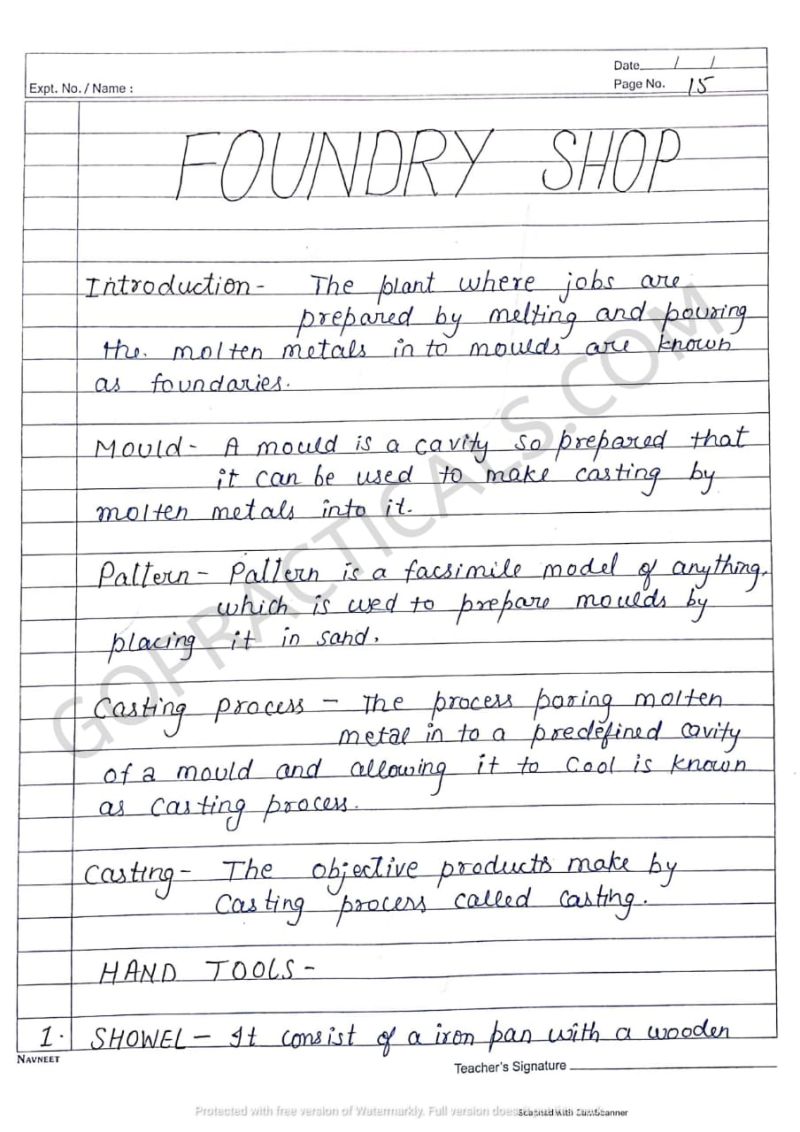 Date / /
Expt. No. / Name :
Page No. 15
FOUNDRY SHOP
Introduction - The plant where jobs are
prepared by melting and pouring
the. molten metals in to moulds are known
as foundaries.
Mould - A mould is a cavity so prepared that
it can be used to make casting by
molten metals into it.
Pattern - Pattern is a facsimile model of anything,
which is used to prepare moulds by
placing it in sand.
Casting process - The process poring molten
metal in to a predefined cavity
of a mould and allowing it to cool is known
as casting process.
Casting - The objective products make by
casting process called casting.
HAND TOOLS -
1. SHOWEL - It consist of a iron pan with a wooden
NAVNEET
Teacher's Signature
GOPRACTICALS.COM
Protected with free version of Watermarkly. Full version does
Scanned with CamScanner